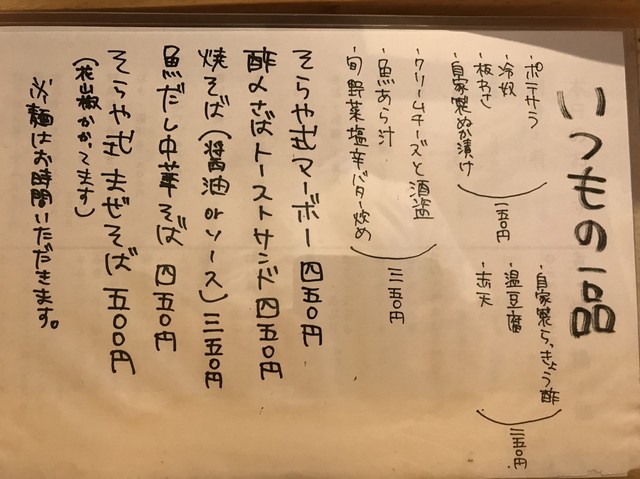 いつもの一品
・ポテサラ
・冷奴
・板わさ
・自家製ぬか漬け
一五〇円
・自家製らっきょう酢
・温豆腐
・あ天
二五〇円
・クリームチーズと酒盗
・魚あら汁
・旬野菜塩辛バター炒め
三五〇円
そらや式マーボー 四五〇円
酢〆さばトーストサンド 四五〇円
焼そば(醤油orソース) 三五〇円
魚だし中華そば 四五〇円
そらや式まぜそば 五〇〇円
(花山椒かかってます)
※麺はお時間いただきます。